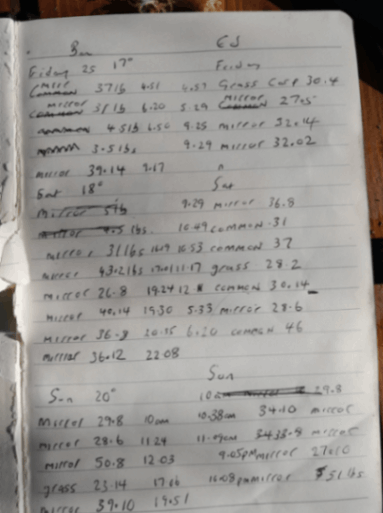 Ben EJ
Friday 25 17° Friday
mirror 37lb 4.51 4.57 Grass Carp 30.4
mirror 31lb 6.20 5.29 mirror 27.5
4.5lb 6.50 9.25 mirror 32.14
3.5lbs 9.29 mirror 32.02
mirror 39.14 9.17
Sat 18° Sat
9.29 mirror 36.8
lbs. 10.49 common 31
mirror 31lbs 10.53 common 37
mirror 43.2lbs 11.17 grass 28.2
mirror 26.8 19.24 common 30.14
mirror 40.14 19.30 5.33 mirror 28.6
mirror 36.8 20.15 6.20 common 46
mirror 36.12 22.08
Sun
Sun 20° 29.8
mirror 29.8 10am 10.38am 34.10 mirror
mirror 28.6 11.24 mirror
mirror 50.8 12.03 9.05pm mirror 27.10
grass 23.14 17.16 mirror 51lbs
mirror 39.10 19.51